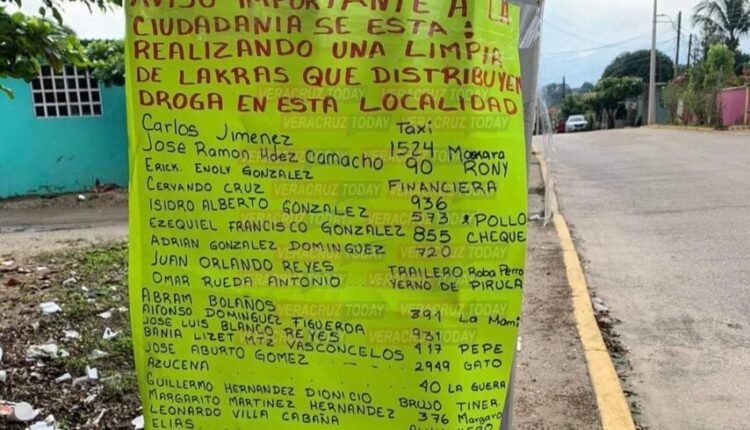 AVISO IMPORTANTE A LA
CIUDADANIA SE ESTA:
REALIZANDO UNA LIMPIA
DE LAKRAS QUE DISTRIBUYEN
DROGA EN ESTA LOCALIDAD
Carlos Jimenez Taxi
Jose Ramon Hdez Camacho 1524 Maskara
Erick. Enoly Gonzalez 90 RONY
Cervando Cruz FINANCIERA
Isidro Alberto Gonzalez 936
Ezequiel Francisco Gonzalez 573 POLLO
Adrian Gonzalez Dominguez 855 CHEQUE
720
Juan Orlando Reyes TRAILERO Roba Perro
Omar Rueda Antonio YERNO DE PIRUCA
Abram Bolaños
Alfonso Dominguez Figueroa 391 La Mami
Jose Luis Blanco Reyes 931
Bania Lizet Mtz Vasconcelos 417 PEPE
Jose Aburto Gomez 2949 GATO
Azucena
Guillermo Hernandez Dionicio 40 LA GUERA
Margarito Martinez Hernandez BRUJO TINER.
Leonardo Villa Cabaña 376 Margaro
Elias.
VERACRUZ TODAY